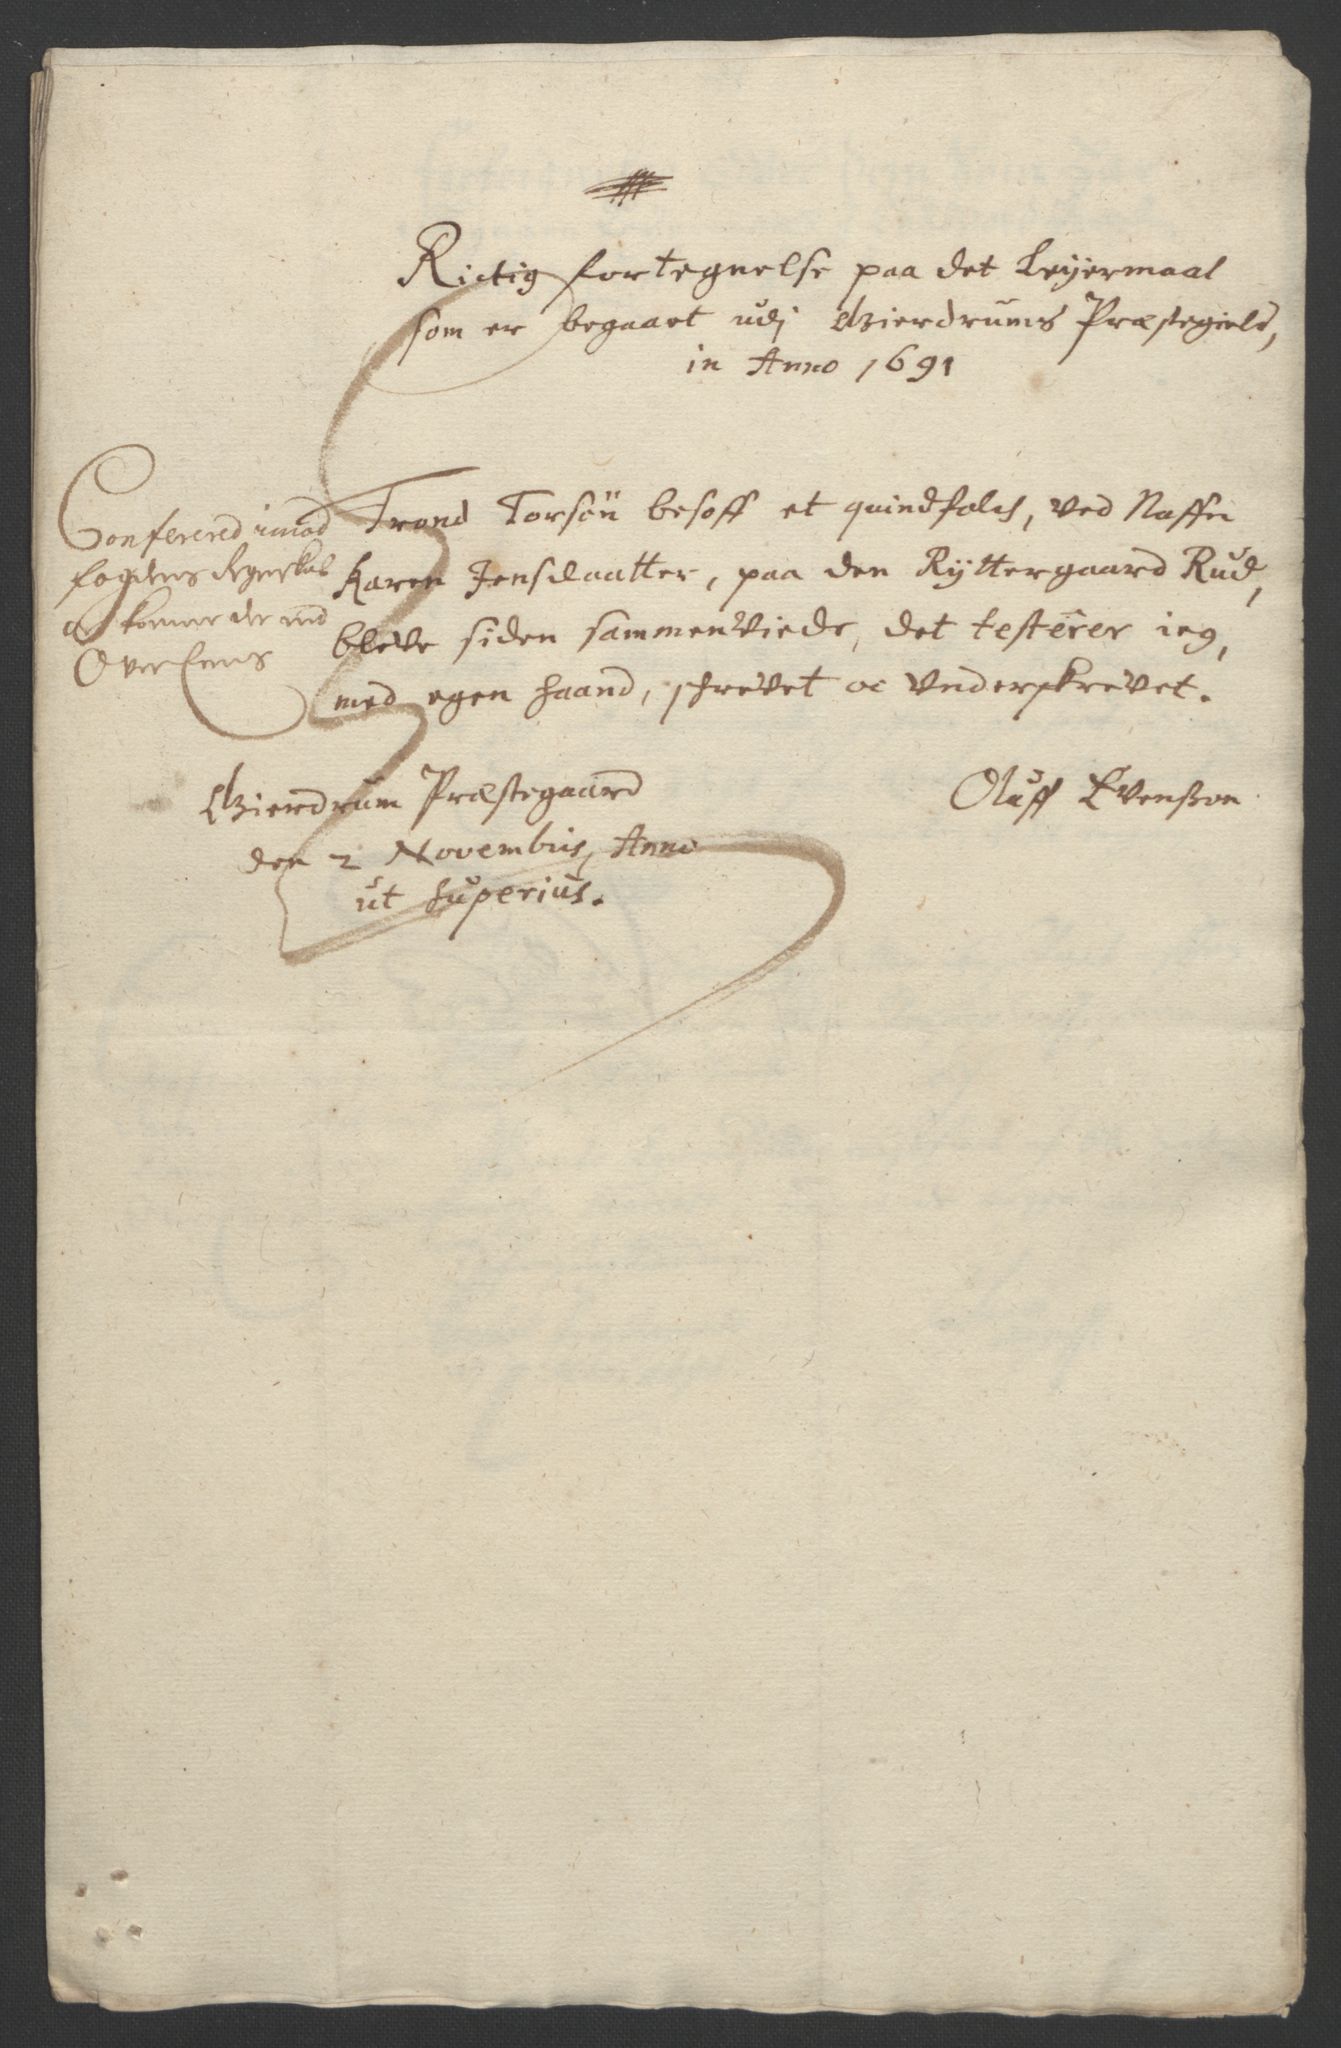 Rictig fortegnelse paa det Leyermaal
som er begaaet udj Gierdrums Præstegield,
in Anno 1691
Conferered imod
fogdens Regnskab
oc kommer der med
Over Eens
Trond Torsön besoff et quindfolch, ved Naffn
Karen Jensdaatter, paa den Ryttergaard Rud,
bleve siden sammenviede, det testerer ieg,
med egen haand, skrevet oc Underskrevet.
Gierdrum Præstegaard
den 2 Novembris, Anno
ut superius.
Oluff Evenßon